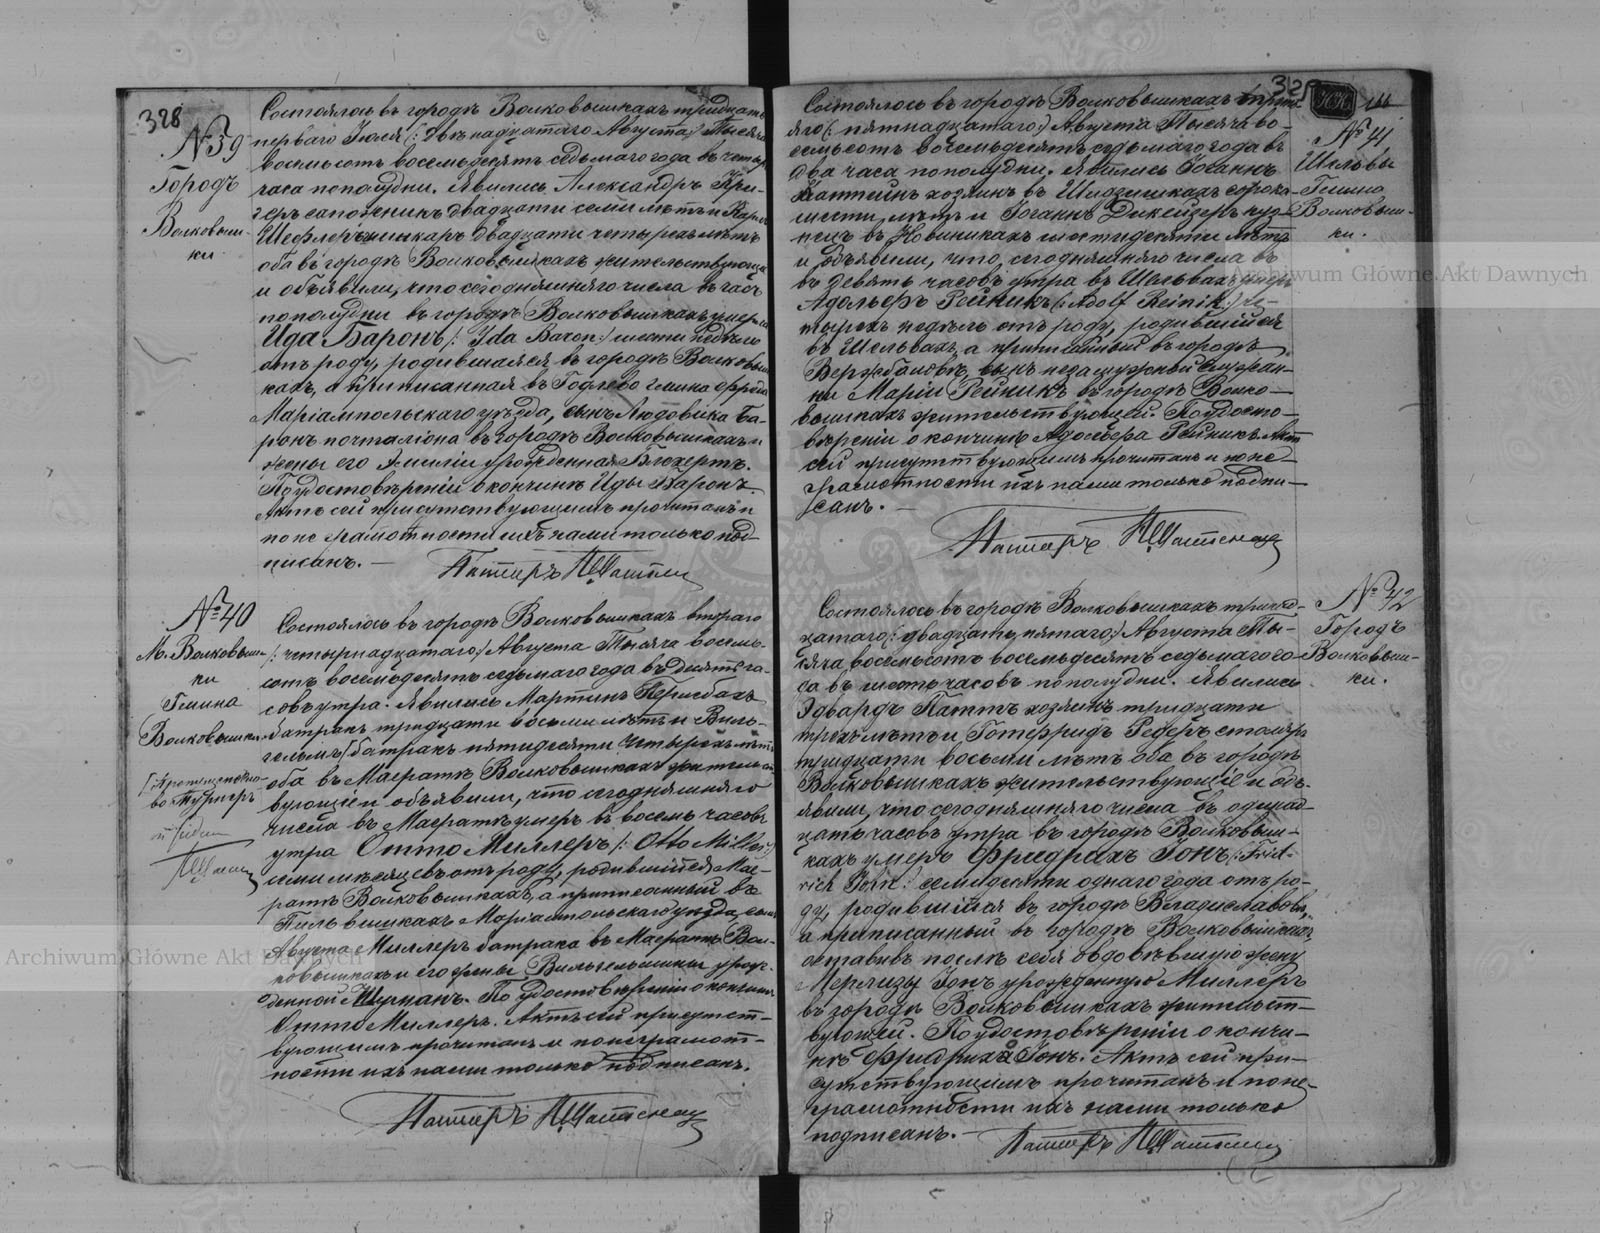 328
№ 39
Городъ
Волковыш-
ки.
Состоялось въ городѣ Волковышкахъ тридцать
перваго Іюля (: двѣнадцатаго Августа:) Тысяча
восемьсотъ восемьдесятъ седьмаго года въ четыре
часа пополудни. Явились Александръ Кри-
геръ сапожникъ двадцати семи лѣтъ и Карлъ
Шефлеръ двадцати четырехъ лѣтъ
оба въ городѣ Волковышкахъ жительствующіе
и объявили, что сегодняшняго числа въ часъ
пополудни въ городѣ Волковышкахъ умерла
Ида Баронъ (: Yda Baron:) шести недѣль
отъ роду, родившаяся въ городѣ Волковыш-
кахъ, а приписанная въ Годлево гмина Фреда
Маріампольскаго уѣзда, сынъ Людовика Ба-
ронъ почталіона въ городѣ Волковышкахъ и
жены его Эмиліи урожденная Блюхертъ.
По удостовѣреніи о кончинѣ Иды Баронъ.
Актъ сей присутствующимъ прочитанъ и
по неграмотности ихъ нами только под-
писанъ. —
Пасторъ
№ 40
М. Волковыш-
ки
Гмина
Волковышки
Состоялось въ городѣ Волковышкахъ втораго
(: четырнадцатаго:) Августа Тысяча восемь-
сотъ восемьдесятъ седьмаго года въ девять ча-
совъ утра. Явились Мартинъ
батракъ тридцати восьми лѣтъ и Виль-
гельмъ батракъ пятидесяти четырехъ лѣтъ
оба въ Маератѣ Волковышкахъ жительст-
вующіе и объявили, что сегодняшняго
числа въ Маератѣ умеръ въ восемь часовъ
утра Отто Миллеръ (: Otto Miller:)
семи мѣсяцевъ отъ роду, родившійся Мае-
ратѣ Волковышкахъ, а приписанный въ
Пильвишкахъ Маріампольскаго уѣзда, сынъ
Августа Миллеръ батрака въ Маератѣ Вол-
ковышкахъ и его жены Вильгельмины урож-
денной Шуманъ. По удостовѣреніи о кончинѣ
Отто Миллеръ. Актъ сей присутст-
вующимъ прочитанъ и по неграмот-
ности ихъ нами только подписанъ.
Пасторъ
325
№ 41
Шельвы
Гмина
Волковыш-
ки.
Состоялось въ городѣ Волковышкахъ треть-
яго (: пятнадцатаго:) Августа Тысяча во-
семьсотъ восемьдесятъ седьмаго года въ
два часа пополудни. Явились Іоганъ
хозяинъ въ сорока
шести лѣтъ и Іоганъ куз-
нецъ въ Новиникахъ шестидесяти лѣтъ
и объявили, что, сегодняшняго числа въ
въ девять часовъ утра въ Шельвахъ умеръ
Адольфъ Рейникъ (: Adolf Reinik:) че-
тырехъ недѣль отъ роду, родившійся
въ Шельвахъ, а приписанный въ городѣ
Вержболовѣ, сынъ незамужней служан-
ки Маріи Рейникъ въ городѣ Волко-
вышкахъ жительствующей. По удосто-
вѣреніи о кончинѣ Адольфа Рейникъ Актъ
сей присутствующимъ прочитанъ и по не-
грамотности ихъ нами только подпи-
санъ. —
Пасторъ
№ 42
Городъ
Волковыш-
ки.
Состоялось въ городѣ Волковышкахъ тринад-
цатаго (: двадцать пятаго:) Августа Ты-
сяча восемьсотъ восемьдесятъ седьмаго го-
да въ шесть часовъ пополудни. Явились
Эдвардъ Паттъ хозяинъ тридцати
трехъ лѣтъ и Готфридъ Редеръ столяръ
тридцати восьми лѣтъ оба въ городѣ
Волковышкахъ жительствующіе и объ-
явили, что сегодняшняго числа въ одинад-
цать часовъ утра въ городѣ Волковыш-
кахъ умеръ Фридрихъ Іонъ (: Frid-
rich Jon:) семидесяти однаго года отъ ро-
ду, родившійся въ городѣ Владиславовѣ,
а приписанный въ городѣ Волковышкахъ
оставивъ послѣ себя овдовѣвшую жену
Іонъ урожденную Миллеръ
въ городѣ Волковышкахъ жительст-
вующей. По удостовѣреніи о кончи-
нѣ Фридриха Іонъ. Актъ сей при-
сутствующимъ прочитанъ и по не-
грамотности ихъ нами только
подписанъ. —
Пасторъ
Archiwum Główne Akt Dawnych
Archiwum Główne Akt Dawnych